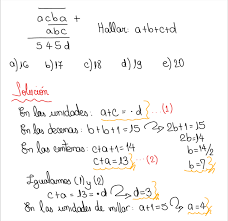 acba +
abc
545d
Hallar: a+b+c+d
a)16 b)17 c)18 d)19 e)20
Solución
En las unidades: a+c = ·d ... (1)
En las decenas: b+b+1=15 2b+1=15
2b=14
En las centenas: c+a+1=14 b=14/2
c+a=13 ... (2) b=7
Igualamos (1) y (2)
c+a=13=·d d=3
En las unidades de millar: a+1=5 a=4